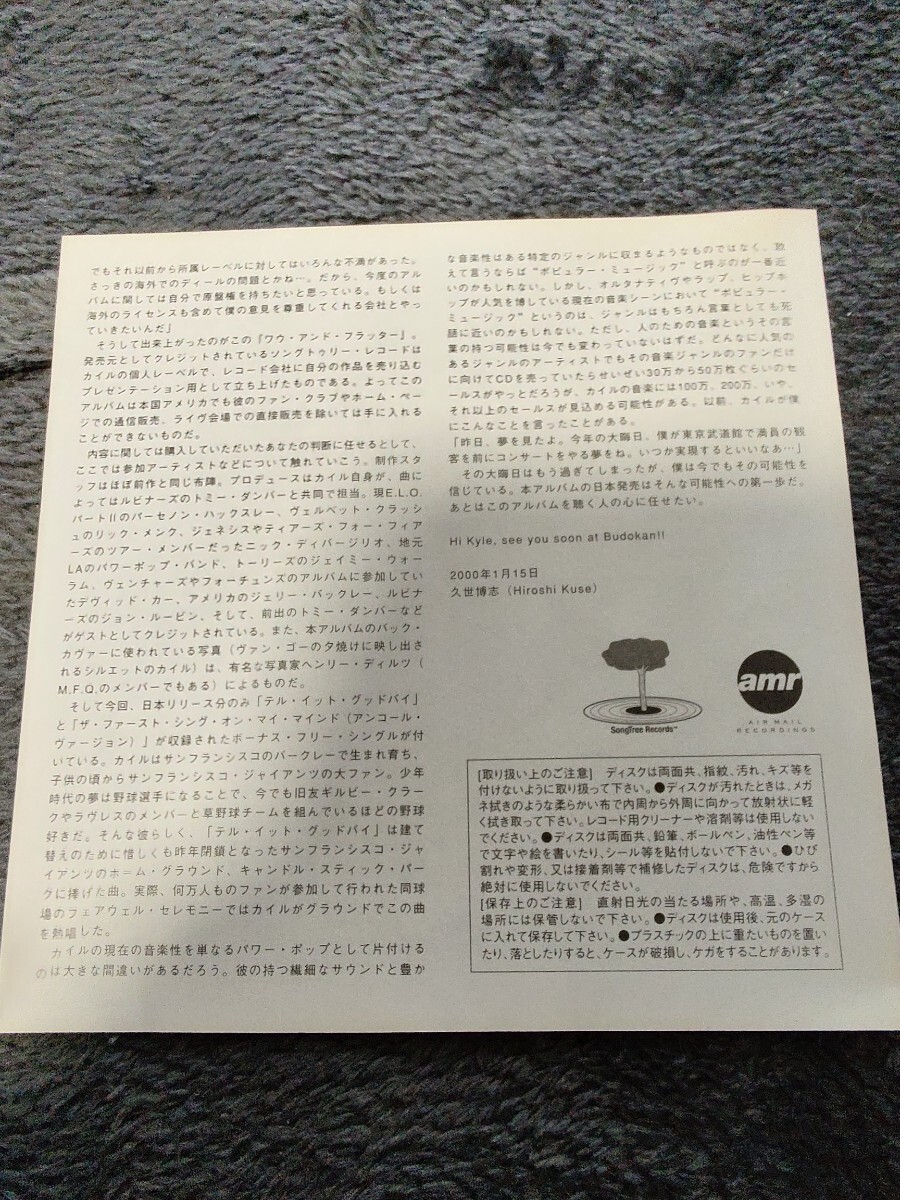 でもそれ以前から所属レーベルに対してはいろんな不満があった。
さっきの海外でのディールの問題とかね…。だから、今度のアル
バムに関しては自分で原盤権を持ちたいと思っている。もしくは
海外のライセンスも含めて僕の意見を尊重してくれる会社とやっ
ていきたいんだ」
そうして出来上がったのがこの『ワウ・アンド・フラッター』。
発売元としてクレジットされているソングトゥリー・レコードは
カイルの個人レーベルで、レコード会社に自分の作品を売り込む
プレゼンテーション用として立ち上げたものである。よってこの
アルバムは本国アメリカでも彼のファン・クラブやホーム・ペー
ジでの通信販売、ライヴ会場での直接販売を除いては手に入れる
ことができないものだ。
内容に関しては購入していただいたあなたの判断に任せるとして、
ここでは参加アーティストなどについて触れていこう。制作スタ
ッフはほぼ前作と同じ布陣。プロデュースはカイル自身が、曲に
よってはルビナーズのトミー・ダンバーと共同で担当。現E.L.O.
パートⅡのパーセノン・ハックスレー、ヴェルベット・クラッシ
ュのリック・メンク、ジェネシスやティアーズ・フォー・フィア
ーズのツアー・メンバーだったニック・ディバージリオ、地元
LAのパワーポップ・バンド、トーリーズのジェイミー・ウォー
ラム、ヴェンチャーズやフォーチュンズのアルバムに参加してい
たデヴィッド・カー、アメリカのジェリー・バックレー、ルビナ
ーズのジョン・ルービン、そして、前出のトミー・ダンバーなど
がゲストとしてクレジットされている。また、本アルバムのバック・
カヴァーに使われている写真（ヴァン・ゴーの夕焼けに映し出さ
れるシルエットのカイル）は、有名な写真家ヘンリー・ディルツ（
M.F.Q.のメンバーでもある）によるものだ。
そして今回、日本リリース分のみ「テル・イット・グッドバイ」
と「ザ・ファースト・シング・オン・マイ・マインド（アンコール・
ヴァージョン）」が収録されたボーナス・フリー・シングルが付
いている。カイルはサンフランシスコのバークレーで生まれ育ち、
子供の頃からサンフランシスコ・ジャイアンツの大ファン。少年
時代の夢は野球選手になることで、今でも旧友ギルビー・クラー
クやラヴレスのメンバーと草野球チームを組んでいるほどの野球
好きだ。そんな彼らしく、「テル・イット・グッドバイ」は建て
替えのために惜しくも昨年閉鎖となったサンフランシスコ・ジャ
イアンツのホーム・グラウンド、キャンドル・スティック・パー
クに捧げた曲。実際、何万人ものファンが参加して行われた同球
場のフェアウェル・セレモニーではカイルがグラウンドでこの曲
を熱唱した。
カイルの現在の音楽性を単なるパワー・ポップとして片付ける
のは大きな間違いがあるだろう。彼の持つ繊細なサウンドと豊か
な音楽性はある特定のジャンルに収まるようなものではなく、敢
えて言うならば“ポピュラー・ミュージック”と呼ぶのが一番近
いのかもしれない。しかし、オルタナティヴやラップ、ヒップホ
ップが人気を博している現在の音楽シーンにおいて“ポピュラー・
ミュージック”というのは、ジャンルはもちろん言葉としても死
語に近いのかもしれない。ただし、人のための音楽というその言
葉の持つ可能性は今でも変わっていないはずだ。どんなに人気の
あるジャンルのアーティストでもその音楽ジャンルのファンだけ
に向けてCDを売っていたらせいぜい30万から50万枚ぐらいのセ
ールスがやっとだろうが、カイルの音楽には100万、200万、いや、
それ以上のセールスが見込める可能性がある。以前、カイルが僕
にこんなことを言ったことがある。
「昨日、夢を見たよ。今年の大晦日、僕が東京武道館で満員の観
客を前にコンサートをやる夢をね。いつか実現するといいなぁ…」
その大晦日はもう過ぎてしまったが、僕は今でもその可能性を
信じている。本アルバムの日本発売はそんな可能性への第一歩だ。
あとはこのアルバムを聴く人の心に任せたい。
Hi Kyle, see you soon at Budokan!!
2000年1月15日
久世博志（Hiroshi Kuse）
SongTree Records™
amr
AIR MAIL
RECORDINGS
[取り扱い上のご注意]　ディスクは両面共、指紋、汚れ、キズ等を
付けないように取り扱って下さい。●ディスクが汚れたときは、メガ
ネ拭きのような柔らかい布で内周から外周に向かって放射状に軽
く拭き取って下さい。レコード用クリーナーや溶剤等は使用しない
でください。●ディスクは両面共、鉛筆、ボールペン、油性ペン等
で文字や絵を書いたり、シール等を貼付しないで下さい。●ひび
割れや変形、又は接着剤等で補修したディスクは、危険ですから
絶対に使用しないでください。
[保存上のご注意]　直射日光の当たる場所や、高温、多湿の
場所には保管しないで下さい。●ディスクは使用後、元のケース
に入れて保存して下さい。●プラスチックの上に重たいものを置い
たり、落としたりすると、ケースが破損し、ケガをすることがあります。